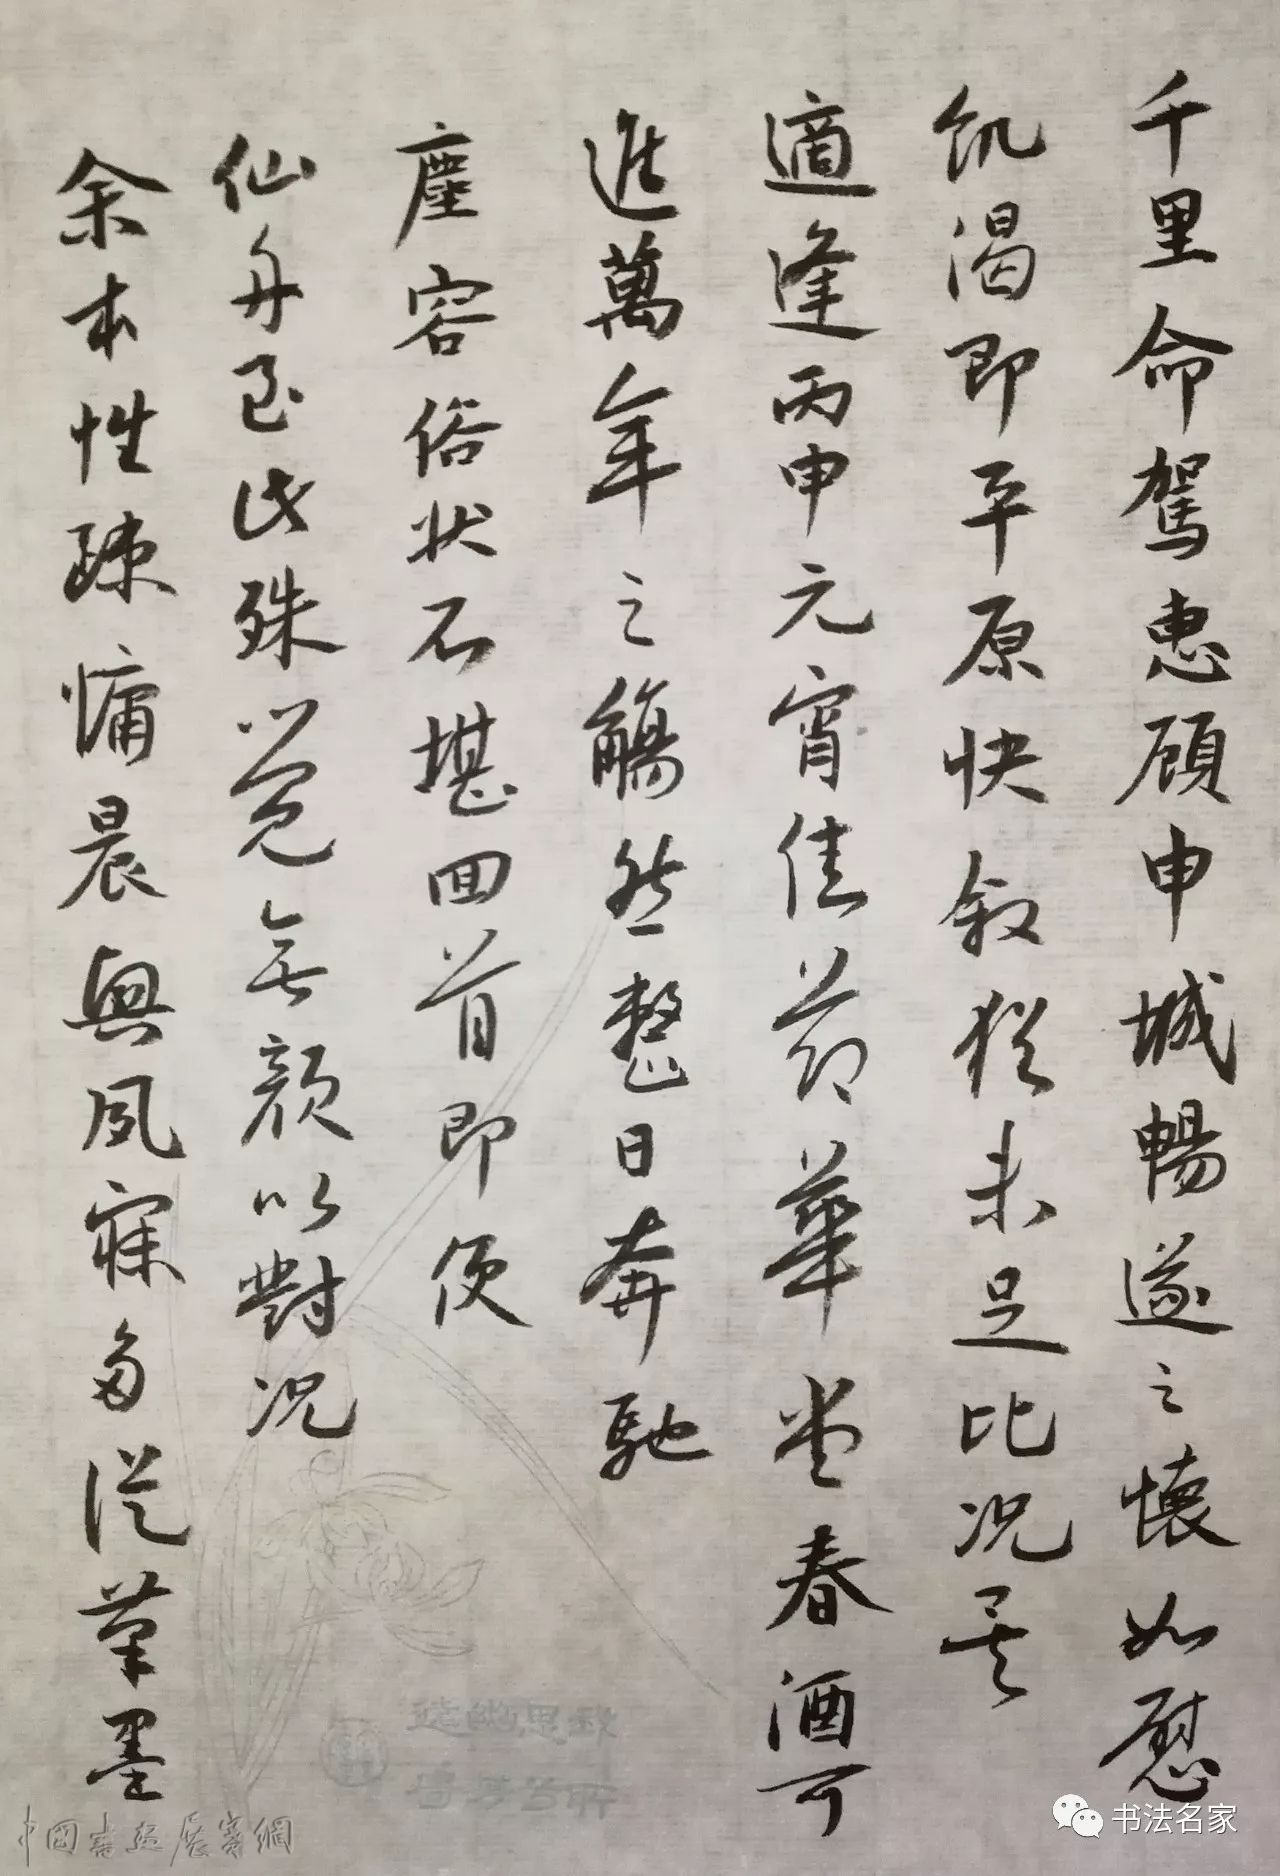 千里命駕惠顧申城暢遂之懷如慰
飢渴即平原快叙猶未足比况矣
適逢丙申元宵佳節華堂春酒可
進萬年之觴然整日奔馳
塵容俗状不堪回首即便
仙舟至此殊覺無顔以對况
余本性疎慵晨興夙寐多從筆墨
中國書畫展賽網
书法名家